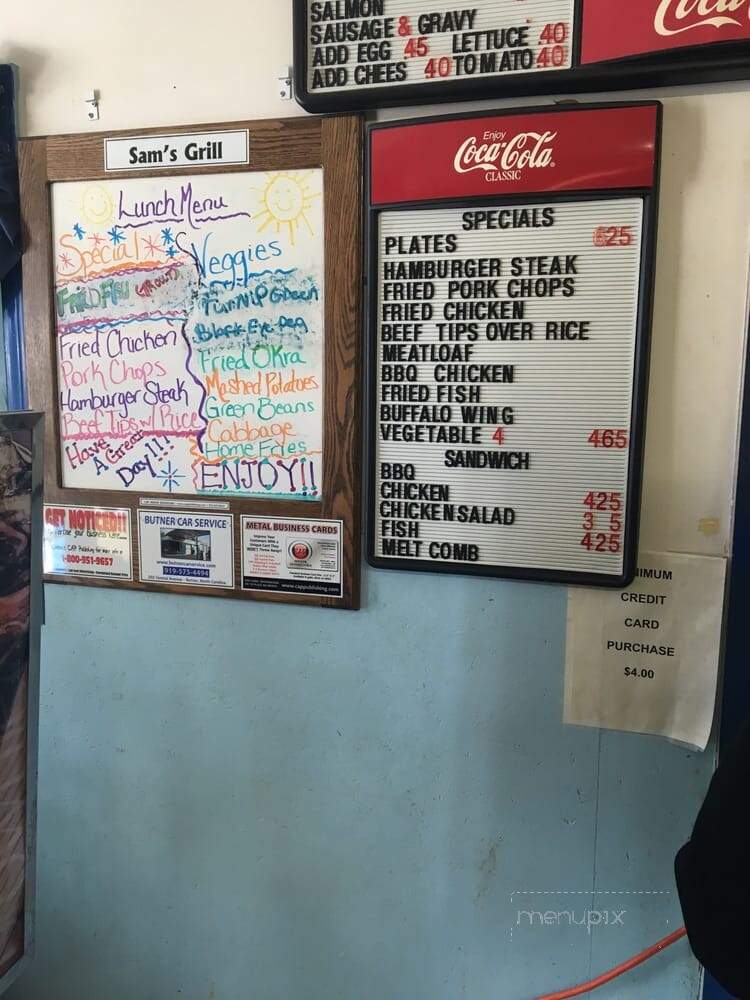 SALMON
SAUSAGE & GRAVY
ADD EGG 45 LETTUCE 40
ADD CHEES 40 TOMATO 40
Sam's Grill
Lunch Menu
Special
Fried Fish
Fried Chicken
Pork Chops
Hamburger Steak
Beef Tips w/ Rice
Have
A Great
Day!!!
Veggies
Turnip Green
Black Eye Pea
Fried Okra
Mashed Potatoes
Green Beans
Cabbage
Home Fries
ENJOY!!
GET NOTICED!!
1-800-951-9657
BUTNER CAR SERVICE
www.butnercarservice.com
919-575-4494
METAL BUSINESS CARDS
www.cappublishing.com
Enjoy
Coca-Cola
CLASSIC
SPECIALS
PLATES 625
HAMBURGER STEAK
FRIED PORK CHOPS
FRIED CHICKEN
BEEF TIPS OVER RICE
MEATLOAF
BBQ CHICKEN
FRIED FISH
BUFFALO WING
VEGETABLE 4 465
SANDWICH
BBQ
CHICKEN 425
CHICKEN SALAD 3 5
FISH 425
MELT COMB
IMUM
CREDIT
CARD
PURCHASE
$4.00
menupix